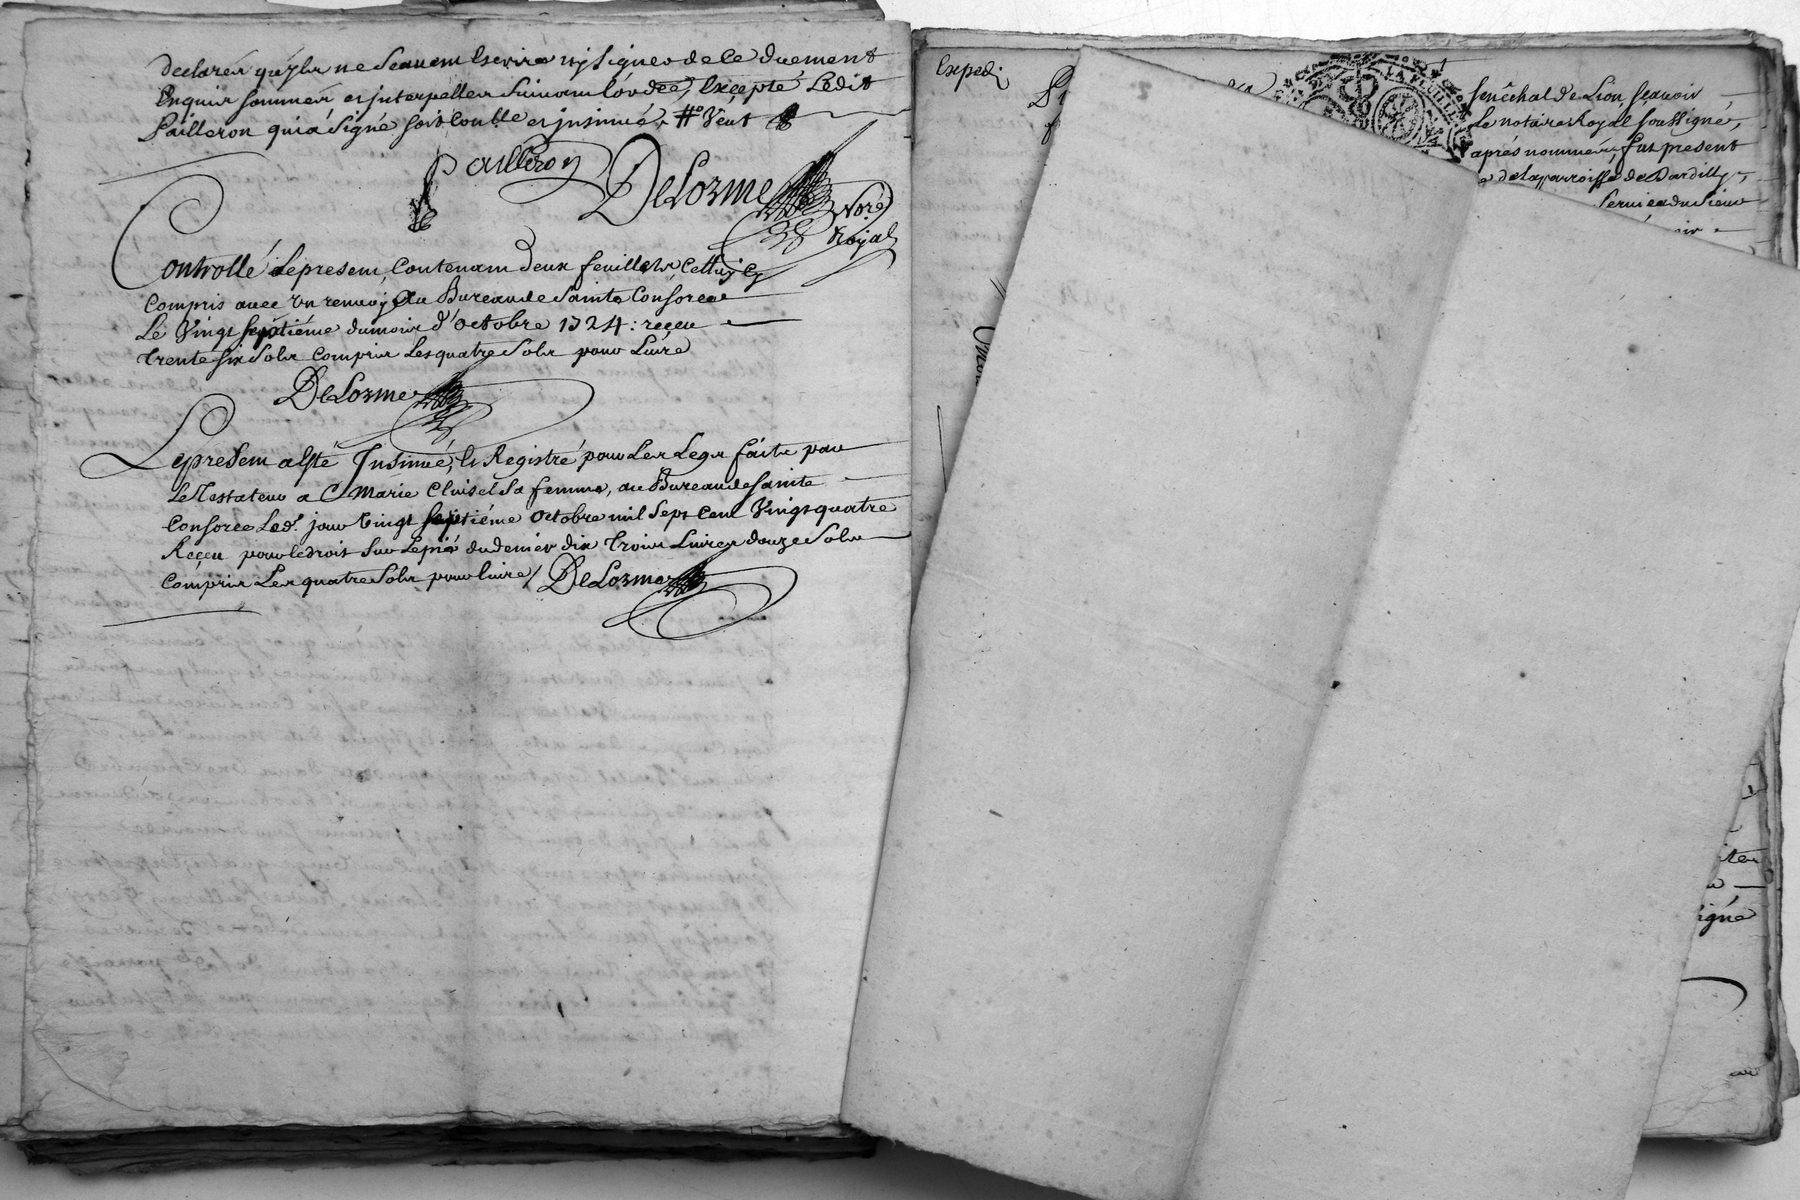 declarés qu'yls ne scavent escrire ny signer de ce duement
enquis sommés et interpellés suivant l'ordce, excepté ledit
Pailleron qui a signé soit conllé et insinué, # veut
Pailleron DeLorme Nore
Royal
Controllé le present contenant deux feuillets, cettuy cy
compris avec un renvoy au Bureau de Sainte Consorce
Le vingt septiéme du mois d'octobre 1724: reçeu
trente six sols compris les quatre sols pour Livre
DeLorme
Le present a esté Insinué, et Registré pour les Legs faits par
Le Testateur a Marie Cluisel sa femme, au Bureau de Sainte
Consorce Led. jour vingt septiéme octobre mil sept cent vingt quatre
Reçeu pour le droit sur le pié du denier dix trois Livres douze sols
compris Les quatre sols pour livre / DeLorme
Expedi
senéchal de Lion, sçavoir
Le notaire Royal soussigné,
aprés nommés, fut present
de la parroisse de Dardilly,
service du sieur
signé